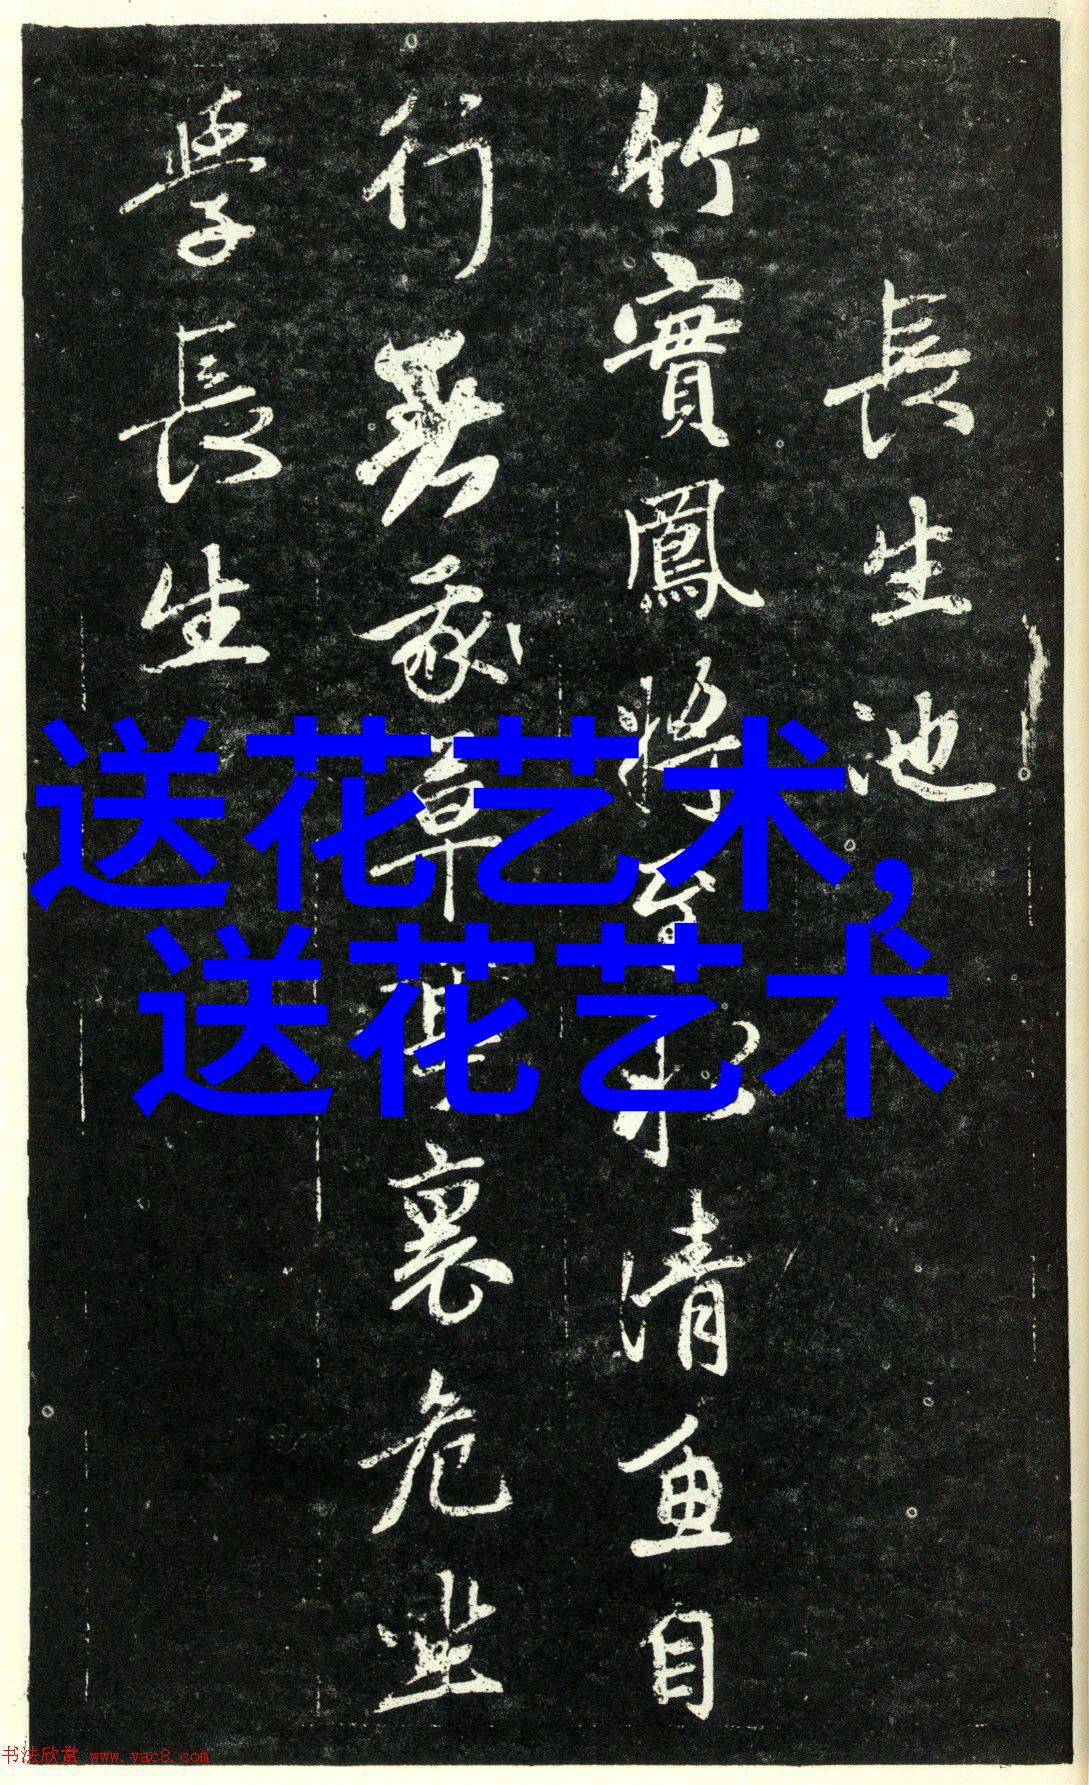 長生池
竹實鳳將至水清魚自
行草裏危坐
學長生
送花艺术,
送花艺术
书法欣赏 www.yac8.com